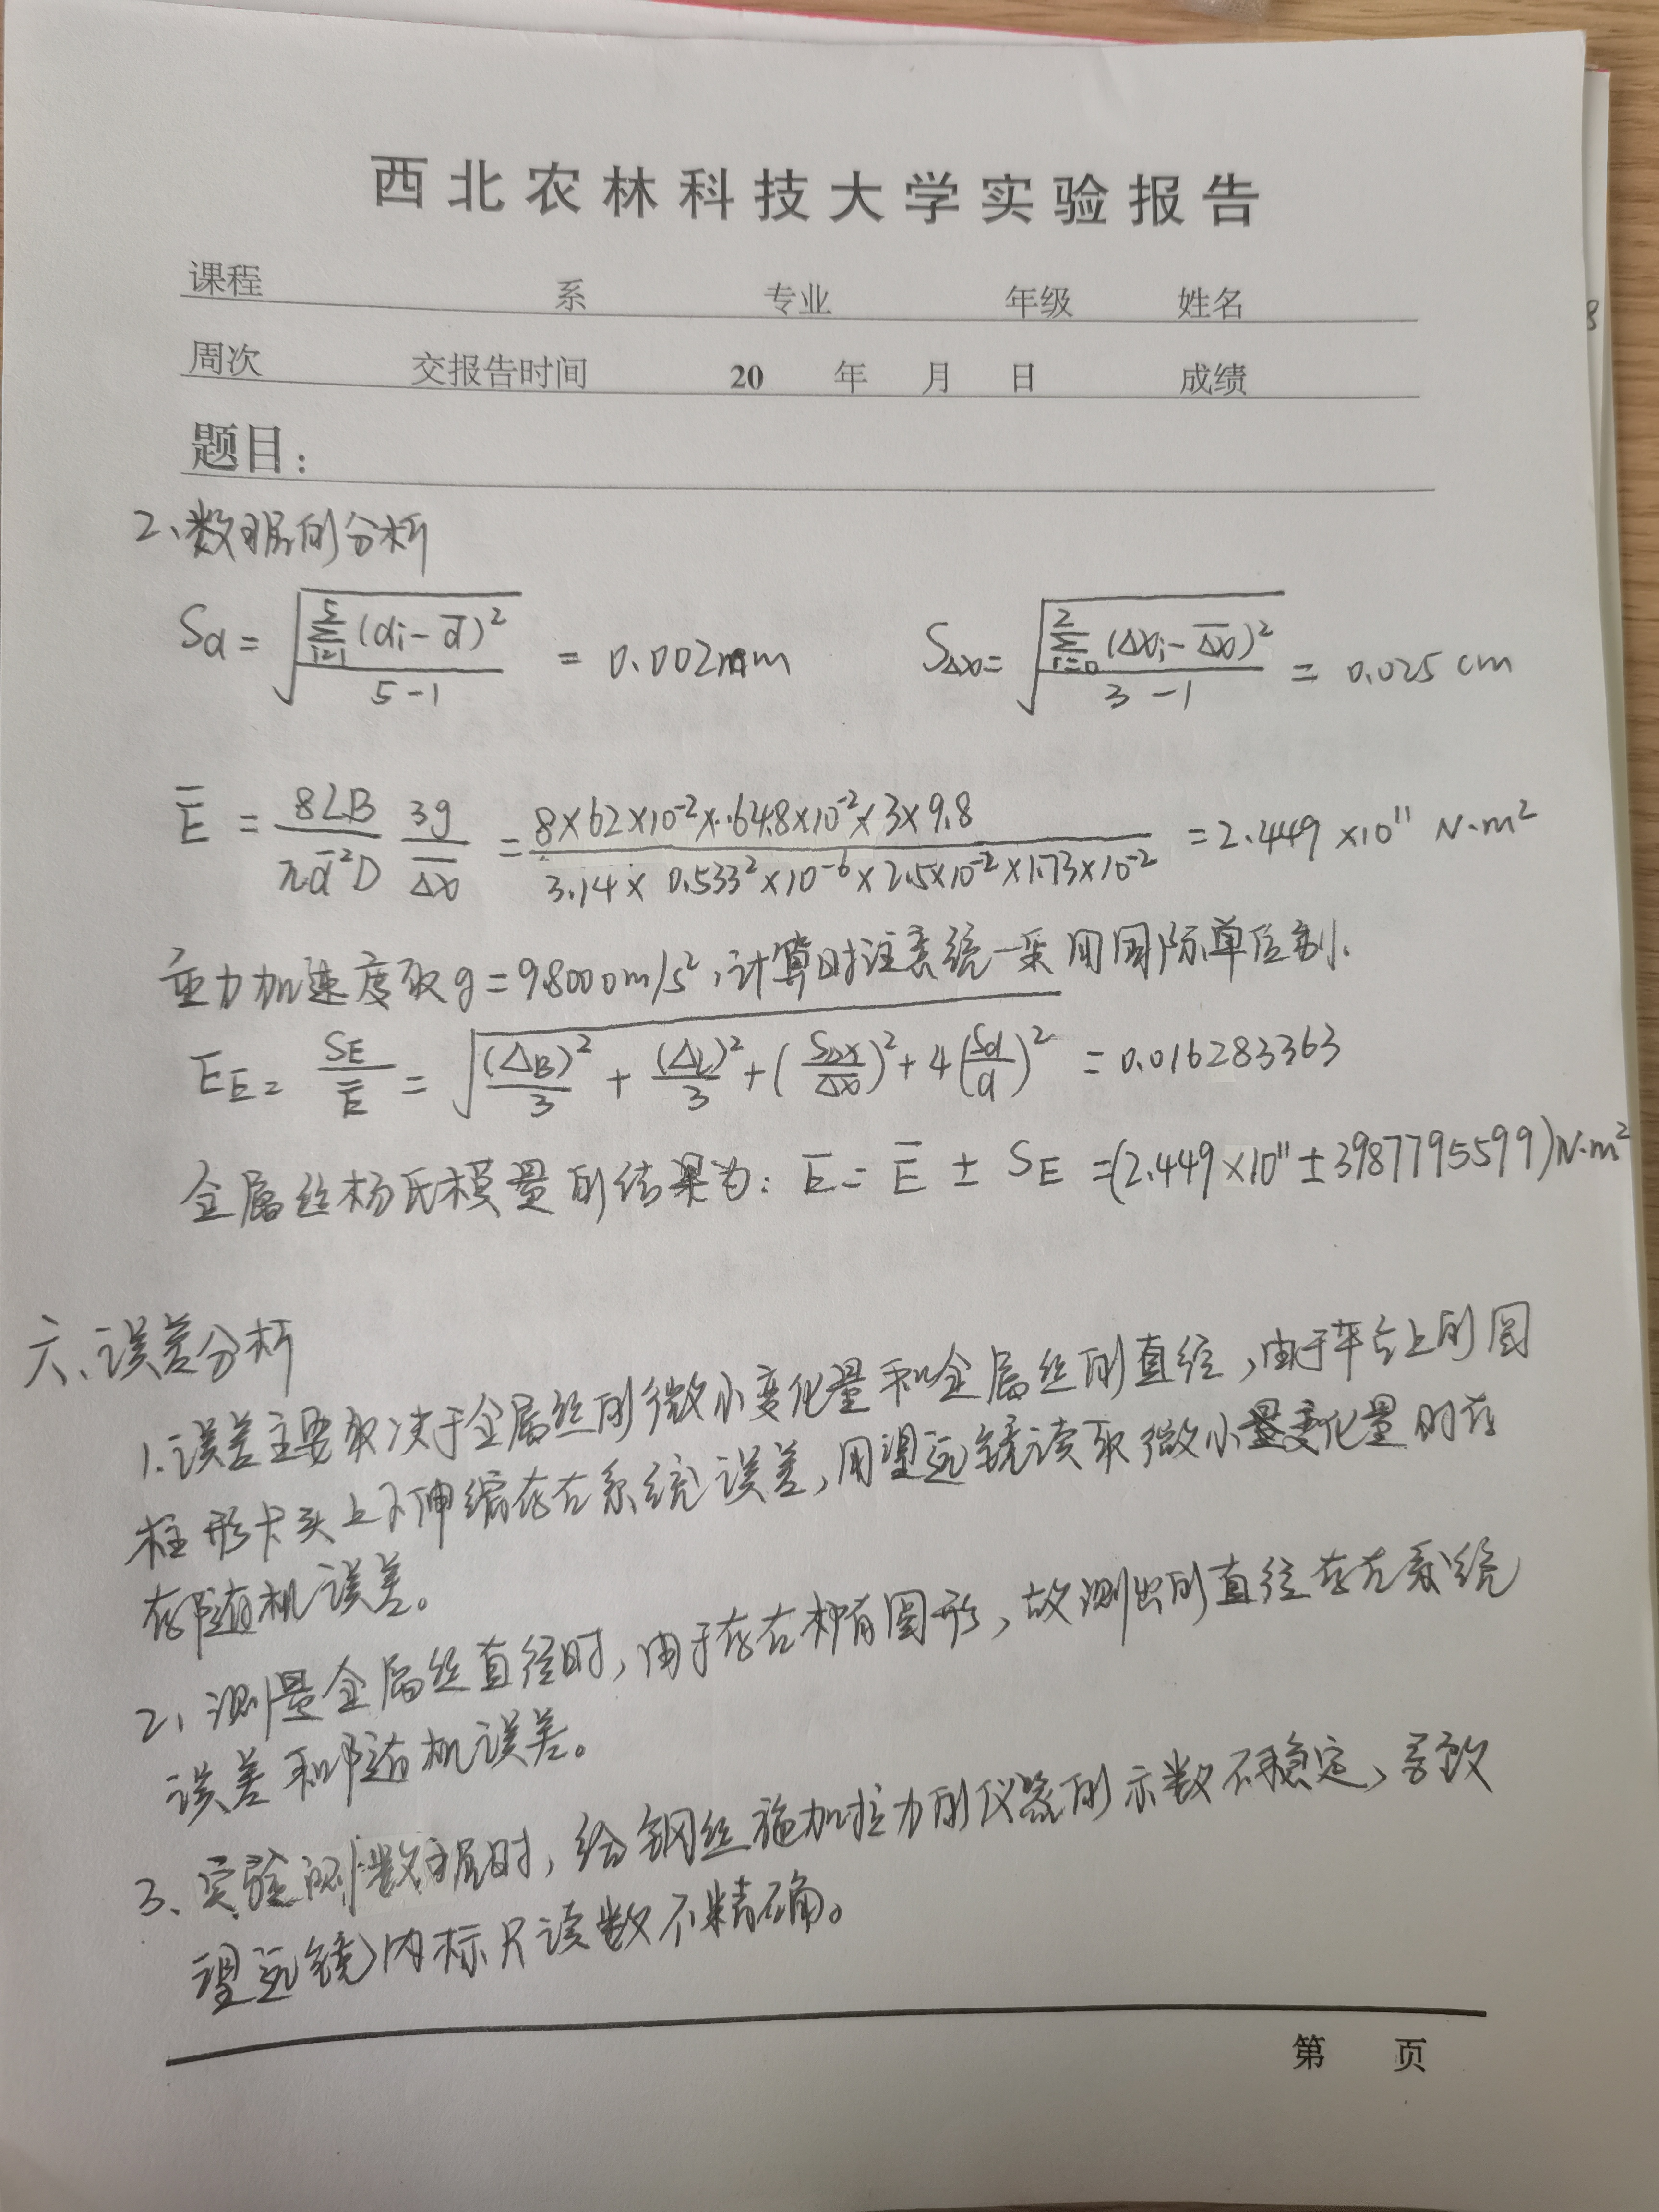 西北农林科技大学实验报告
课程 系 专业 年级 姓名
周次 交报告时间 20 年 月 日 成绩
题目：
2、数据的分析
Sd = √(Σ(i=1→5)(di - d̄)² / (5-1)) = 0.002mm SΔx = √(Σ(i=0→2)(Δxi - Δx̄)² / (3-1)) = 0.025 cm
Ē = 8LB/(πd̄²D) · 3g/Δx̄ = (8×62×10⁻²×64.8×10⁻²×3×9.8)/(3.14×0.533²×10⁻⁶×2.5×10⁻²×1.73×10⁻²) = 2.449×10¹¹ N·m²
重力加速度取g=9.8000m/s²，计算时注意统一采用国际单位制.
EE = SE/Ē = √((ΔB)²/3 + (ΔL)²/3 + (SΔx/Δx̄)² + 4(Sd/d)²) = 0.016283363
金属丝杨氏模量的结果为：E = Ē ± SE = (2.449×10¹¹±3987795599)N·m²
六、误差分析
1.误差主要取决于金属丝的微小变化量和金属丝的直径，由于平台上的圆
柱形卡头上下伸缩存在系统误差，用望远镜读取微小量变化量时存
在随机误差。
2、测量金属丝直径时，由于存在椭圆形，故测出的直径存在系统
误差和随机误差。
3、实验测数据时，给钢丝施加拉力的仪器的示数不稳定，导致
望远镜内标尺读数不精确。
8
第 页